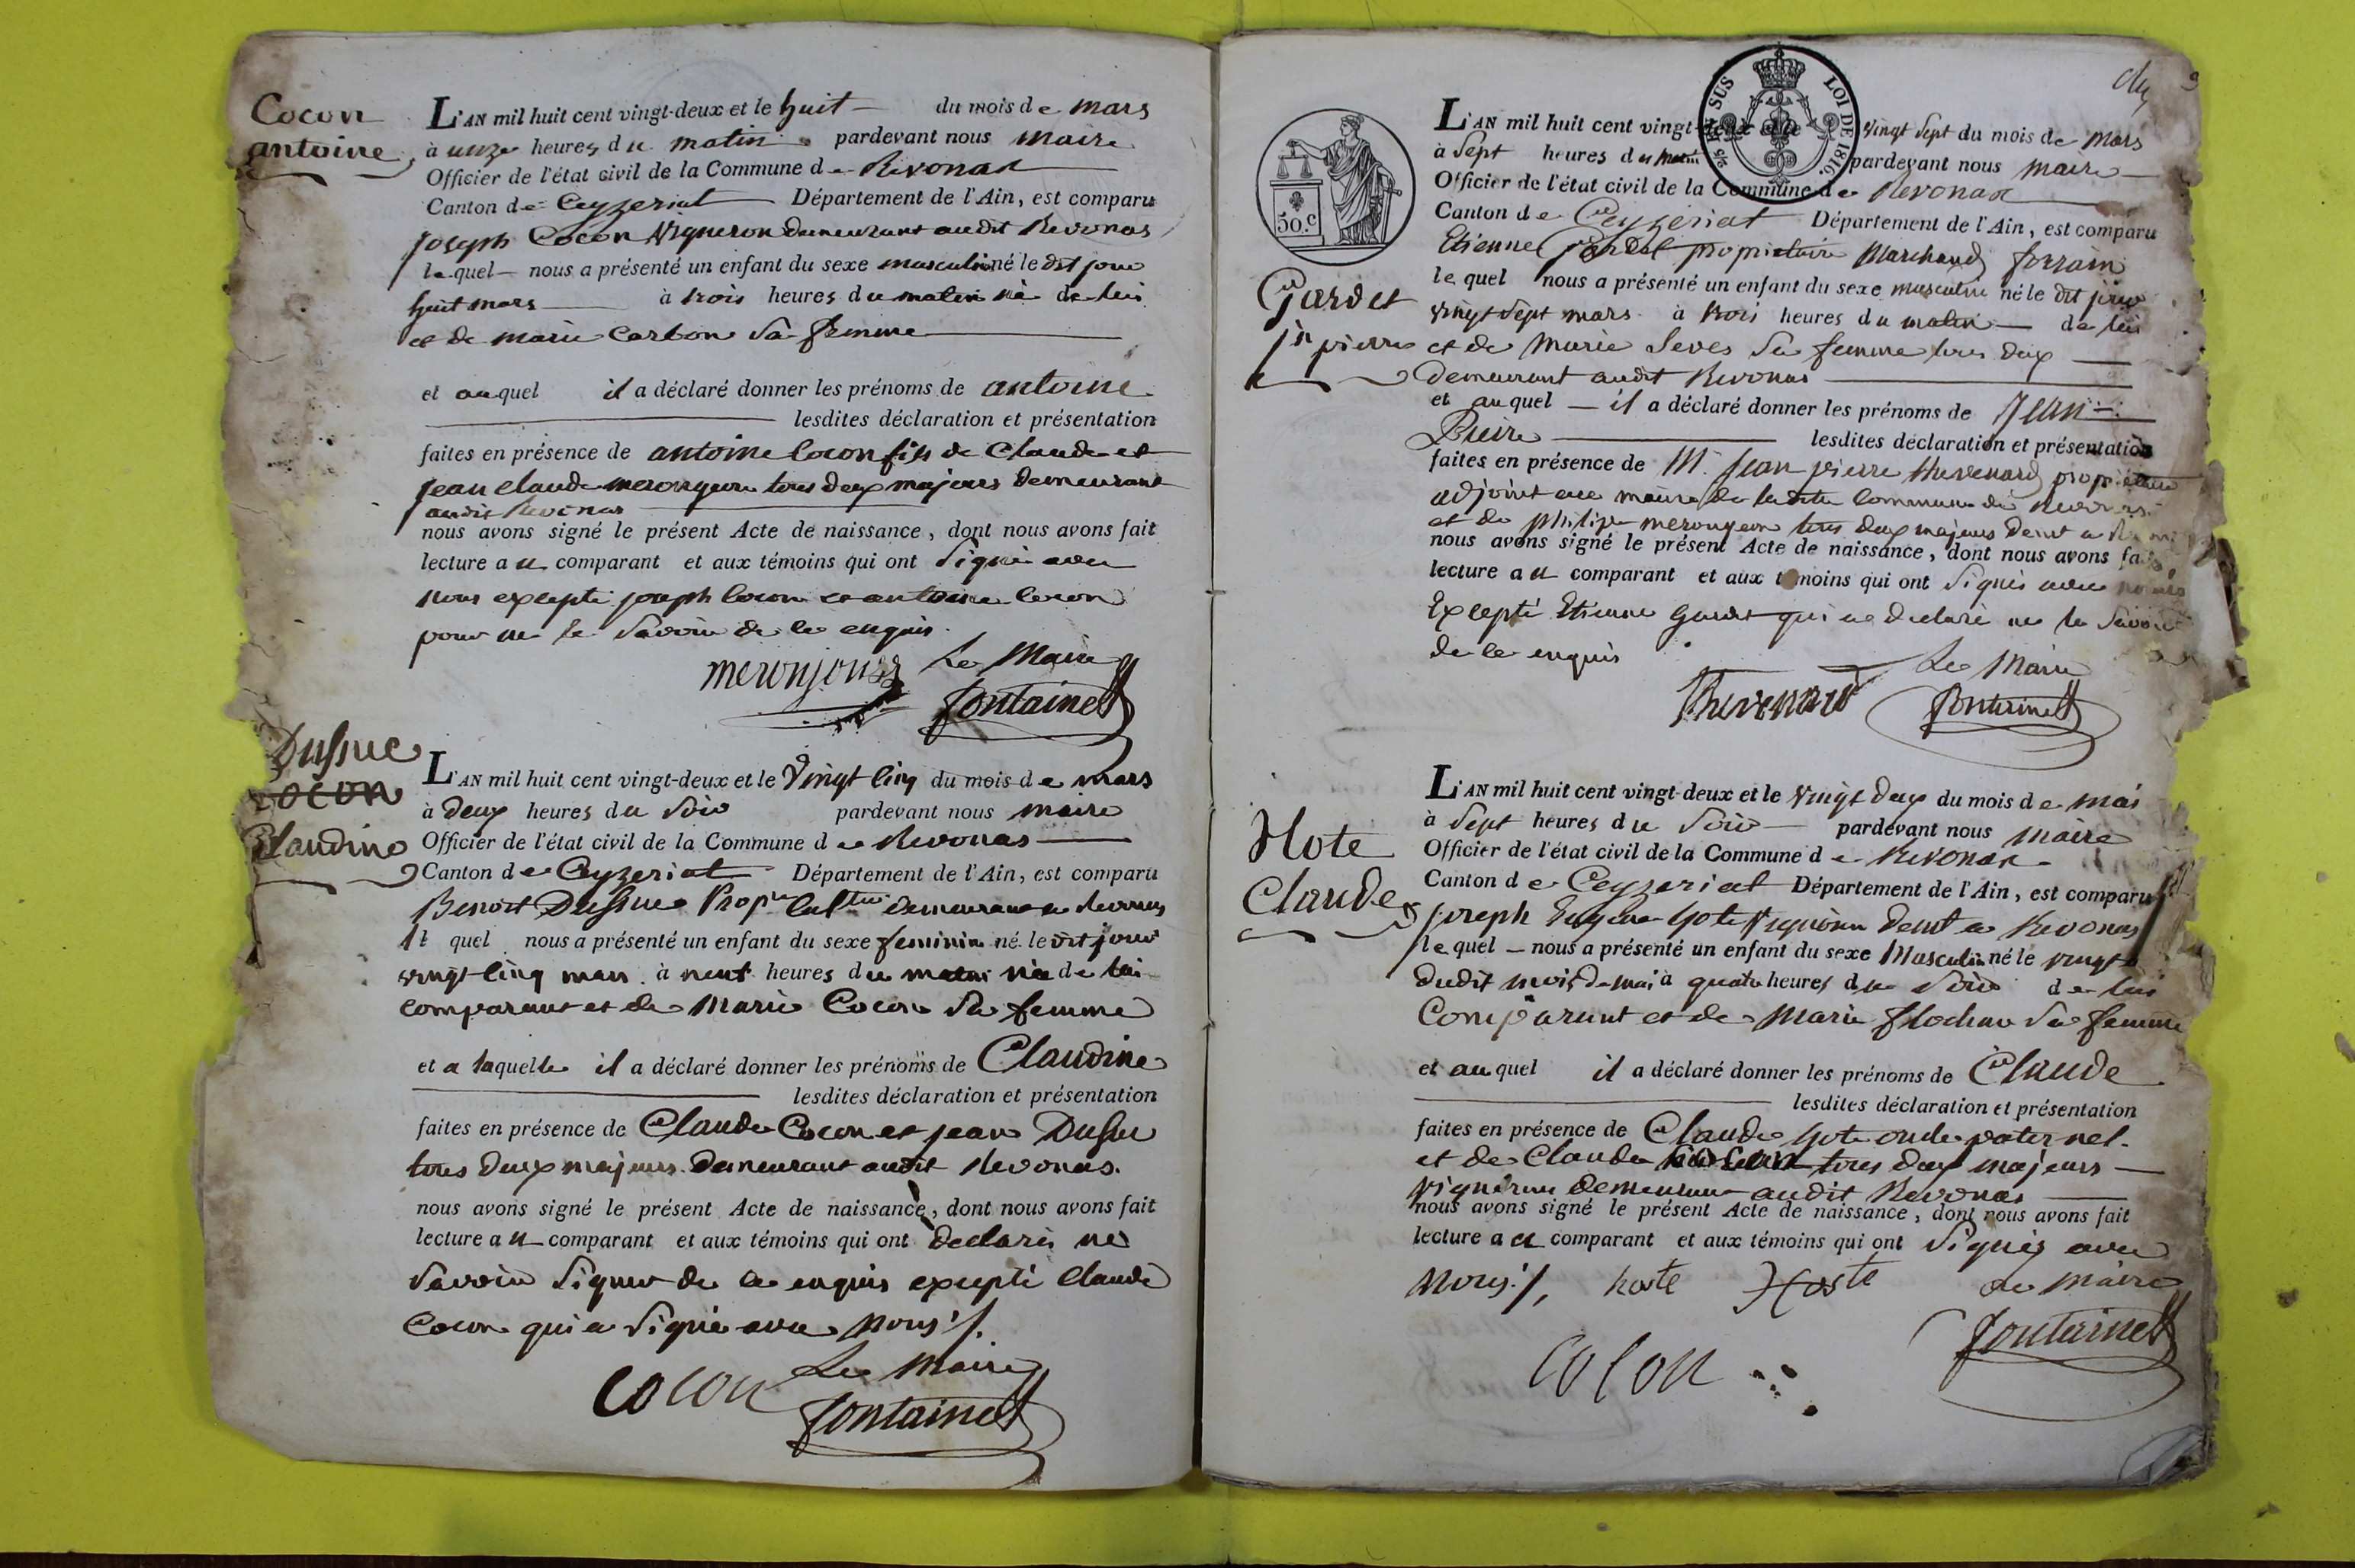 Cocon
antoine
L'AN mil huit cent vingt-deux et le huit du mois de mars
à unze heures du matin pardevant nous maire
Officier de l'état civil de la Commune de Revonas
Canton de Ceyzeriat Département de l'Ain, est comparu
joseph Cocon Vigneron demeurant audit Revonas
le quel nous a présenté un enfant du sexe masculin né le dit jour
huit mars à trois heures du matin né de lui
et de marie Carbon sa femme
et au quel il a déclaré donner les prénoms de antoine
lesdites déclaration et présentation
faites en présence de antoine Cocon fils de Claude et
jean claude meronjeon tous deux majeurs demeurant
audit Revonas
nous avons signé le présent Acte de naissance, dont nous avons fait
lecture au comparant et aux témoins qui ont signé avec
nous excepté joseph Cocon et antoine Cocon
pour ne le savoir de ce enquis
meronjon Le Maire
fontainet
Dussuc
Cocon
Claudine
L'AN mil huit cent vingt-deux et le vingt cinq du mois de mars
à deux heures du soir pardevant nous maire
Officier de l'état civil de la Commune de Revonas
Canton de Ceyzeriat Département de l'Ain, est comparu
Benoit Dussuc Prop.re demeurant a Revonas
le quel nous a présenté un enfant du sexe feminin né le dit jour
vingt cinq mars à neuf heures du matin née de lui
comparant et de Marie Cocon sa femme
et a laquelle il a déclaré donner les prénoms de Claudine
lesdites déclaration et présentation
faites en présence de Claude Cocon et jean Dussuc
tous deux majeurs demeurant audit Revonas.
nous avons signé le présent Acte de naissance, dont nous avons fait
lecture au comparant et aux témoins qui ont declaré ne
savoir signer de ce enquis excepté Claude
Cocon qui a signé avec nous ./.
cocon Le Maire
fontainet
LOI DE 1816.
50.c
Gardet
jn pierre
L'AN mil huit cent vingt-deux et le vingt sept du mois de mars
à sept heures du matin pardevant nous maire
Officier de l'état civil de la Commune de Revonas
Canton de Ceyzeriat Département de l'Ain, est comparu
Etienne Gardet proprietaire Marchand forrain
le quel nous a présenté un enfant du sexe masculin né le dit jour
vingt sept mars à trois heures du matin de lui
et de Marie Seves sa femme tous deux
demeurant audit Revonas
et au quel il a déclaré donner les prénoms de Jean
Pierre lesdites déclaration et présentation
faites en présence de M. Jean pierre thevenard propriétaire
adjoint au maire de ladite Commune de Revonas
et de philipe meronjeon tous deux majeurs demt a
nous avons signé le présent Acte de naissance, dont nous avons fait
lecture au comparant et aux témoins qui ont signés avec nous
Excepté Etienne Gardet qui a declaré ne le savoir
de ce enquis
Le Maire
Thevenard fontainet
Hote
Claude
L'AN mil huit cent vingt-deux et le vingt deux du mois de mai
à sept heures du soir pardevant nous maire
Officier de l'état civil de la Commune de Revonas
Canton de Ceyzeriat Département de l'Ain, est comparu
joseph hote vigneron demt a Revonas
le quel nous a présenté un enfant du sexe Masculin né le vingt
dudit mois de mai à quatre heures du soir de lui
Comparant et de Marie sa femme
et au quel il a déclaré donner les prénoms de Claude
lesdites déclaration et présentation
faites en présence de Claude hote oncle paternel
et de Claude Cocon tous deux majeurs
vigneron demeurant audit Revonas
nous avons signé le présent Acte de naissance, dont nous avons fait
lecture au comparant et aux témoins qui ont signés avec
nous ./. hoste Hoste Le maire
fontainet
cocon